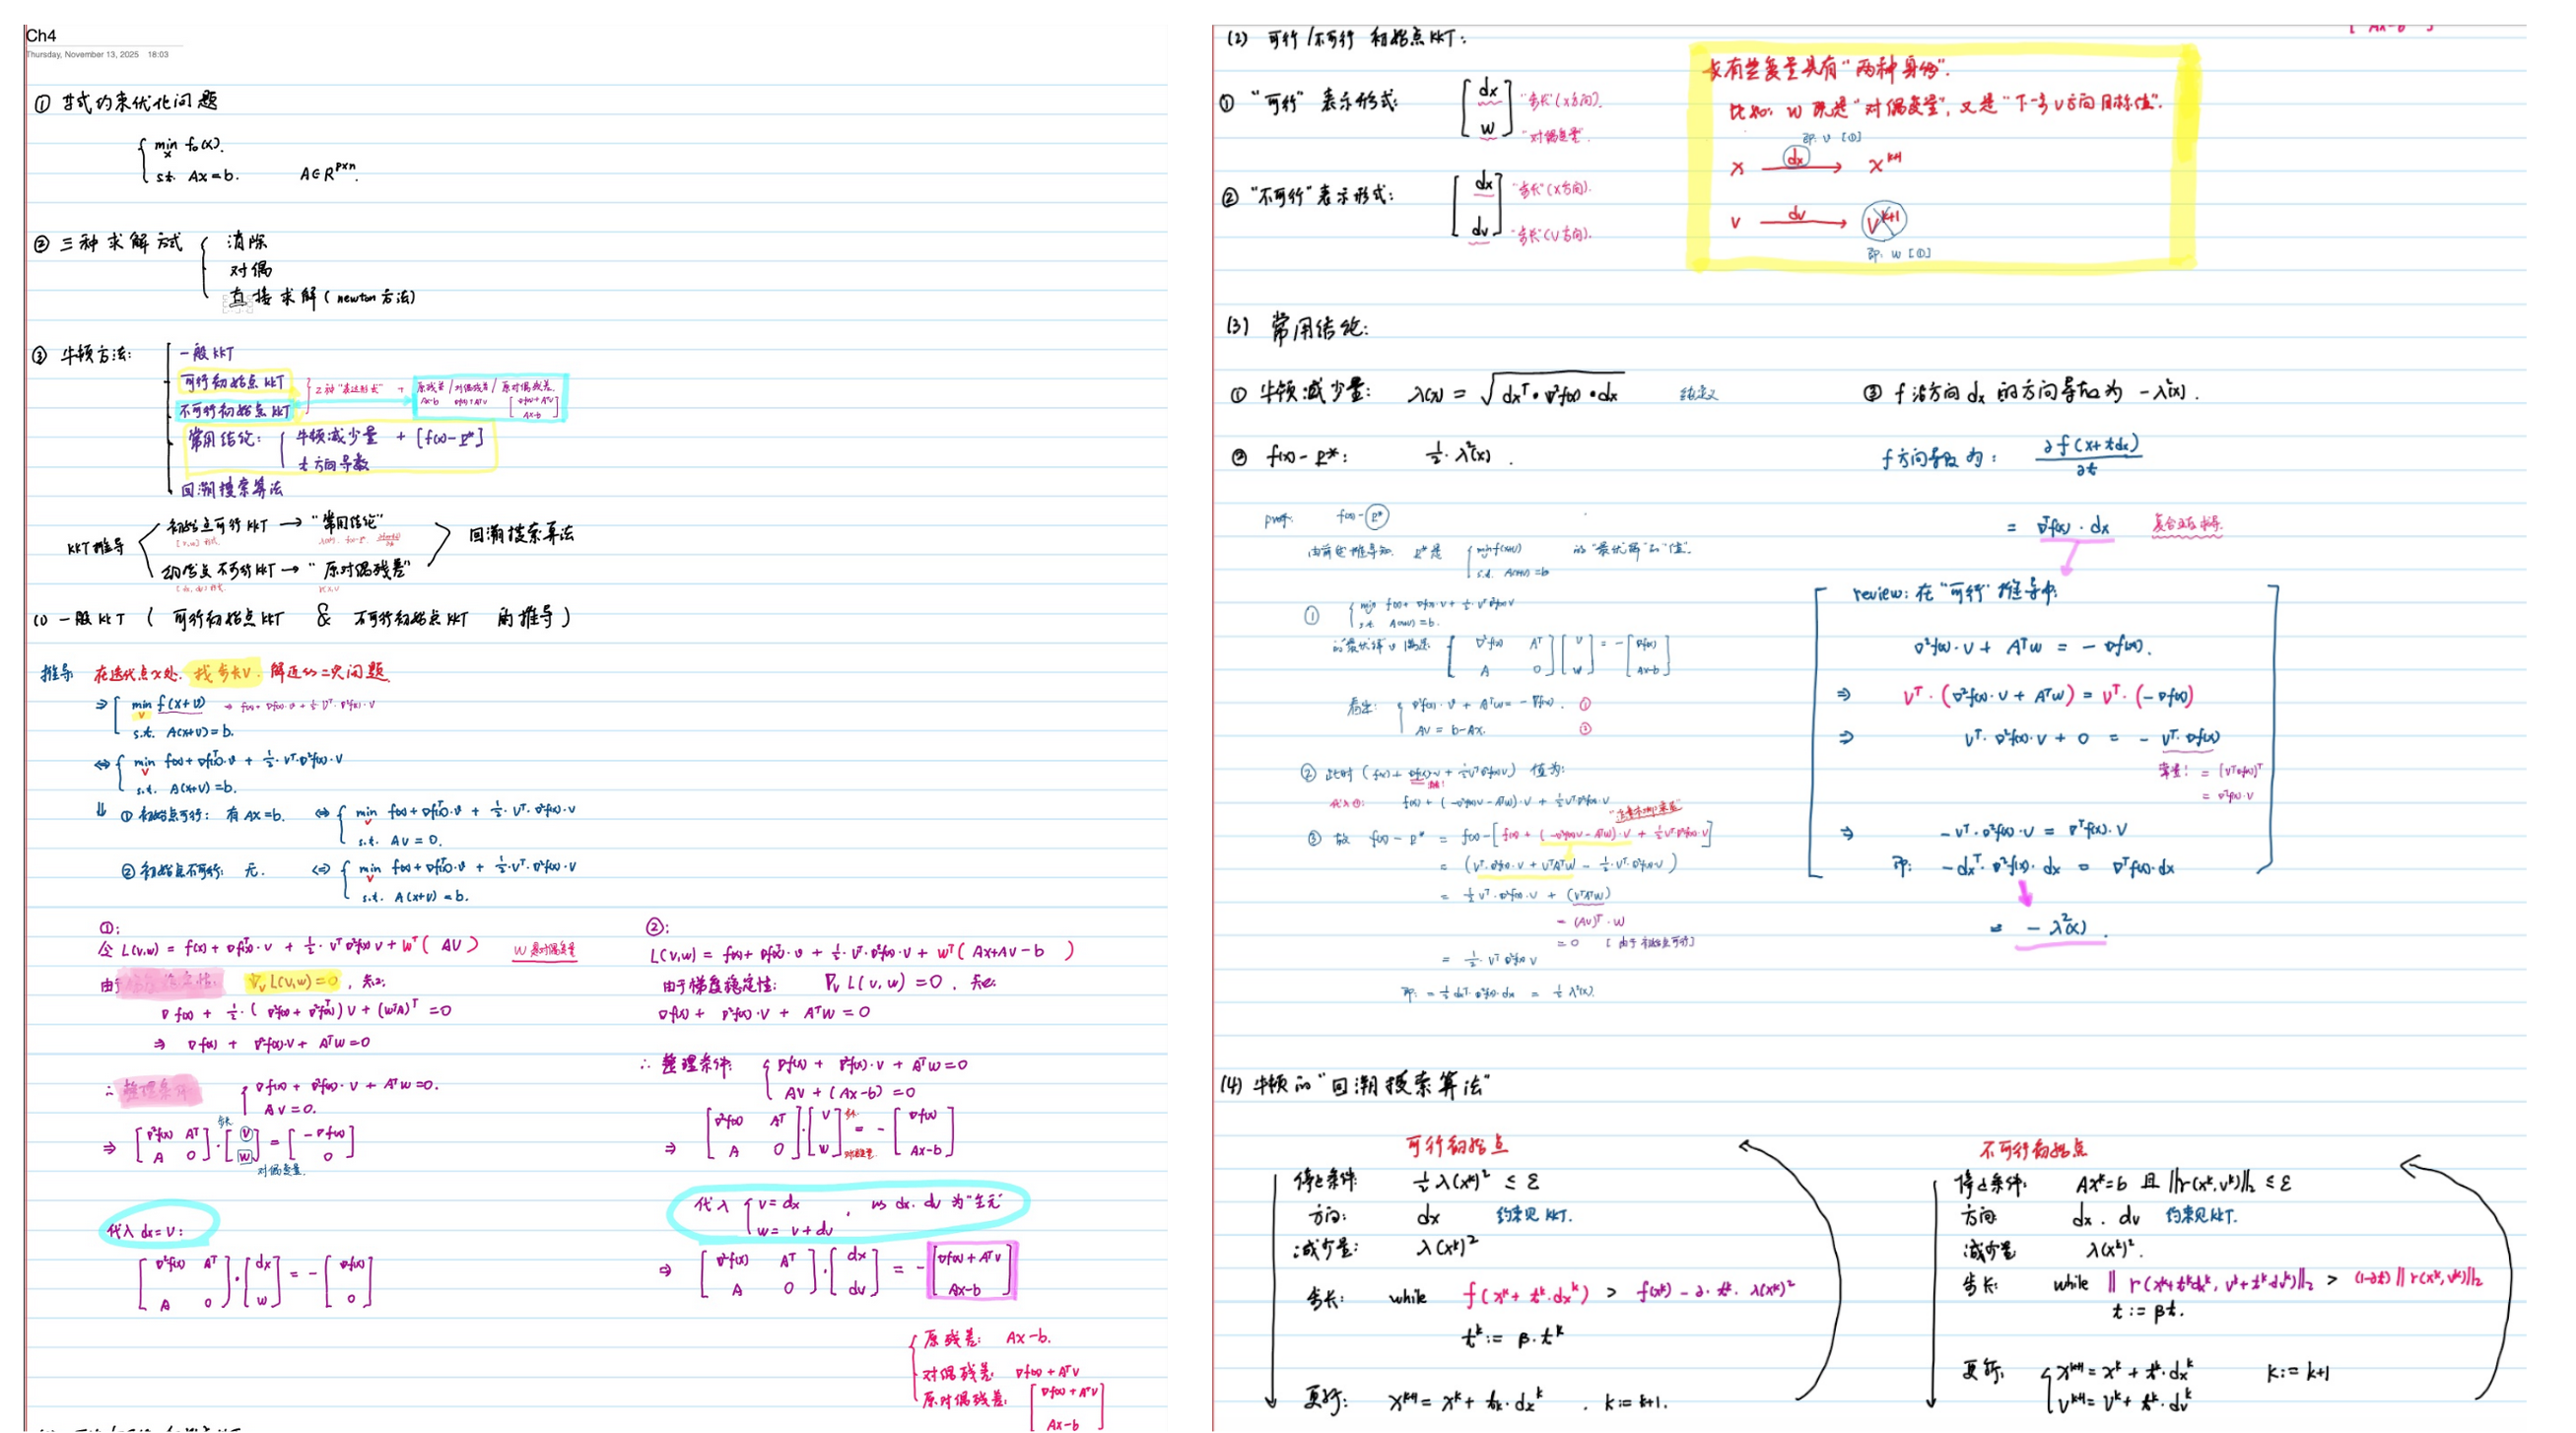 Ch4
Thursday, November 13, 2025 18:03
① 等式约束优化问题
min f₀(x).
x
s.t. Ax=b. A∈R^{p×n}.
② 三种求解方式
消除
对偶
直接求解(newton方法)
③ 牛顿方法:
一般KKT
可行初始点KKT
不可行初始点KKT
2种"表达形式" → 原残差/对偶残差/原对偶残差.
Ax-b ∇f(x)+AᵀV [∇f(x)+AᵀV
Ax-b]
常用结论: 牛顿减少量 + [f(x)-P*]
t方向导数
回溯搜索算法
KKT推导
初始点可行KKT → "常用结论"
初始点不可行KKT → "原对偶残差"
回溯搜索算法
(1) 一般KKT ( 可行初始点KKT & 不可行初始点KKT 的推导 )
推导 在迭代点x处, 找步长V. 解近似二次问题
⇒ min f(x+v) → f(x)+∇f(x)·v+½·Vᵀ·∇²f(x)·V
v
s.t. A(x+v)=b.
⇔ min f(x)+∇f(x)ᵀ·v + ½·Vᵀ·∇²f(x)·V
v
s.t. A(x+v)=b.
⇓ ① 初始点可行: 有 Ax=b. ⇔ min f(x)+∇f(x)ᵀ·v + ½·Vᵀ·∇²f(x)·V
v
s.t. AV=0.
② 初始点不可行: 无. ⇔ min f(x)+∇f(x)ᵀ·v + ½·Vᵀ·∇²f(x)·V
v
s.t. A(x+v)=b.
①:
令 L(v,w) = f(x) + ∇f(x)ᵀ·v + ½·Vᵀ∇²f(x)V + wᵀ( AV ) W是对偶变量
由于 ∇ᵥL(v,w)=0, 知:
∇f(x) + ½·( ∇²f(x) + ∇²f(x)ᵀ )V + (wᵀA)ᵀ = 0
⇒ ∇f(x) + ∇²f(x)·V + AᵀW=0
∴ 整理条件 ∇f(x) + ∇²f(x)·V + AᵀW=0.
AV=0.
⇒ [∇²f(x) Aᵀ
A 0]·[V
W] = [-∇f(x)
0]
步长
对偶变量.
代入 dx=V:
[∇²f(x) Aᵀ
A 0]·[dx
w] = -[∇f(x)
0]
②:
L(v,w) = f(x) + ∇f(x)ᵀ·v + ½·Vᵀ·∇²f(x)·V + wᵀ( Ax+AV-b )
由于梯度稳定性: ∇ᵥL(v,w)=0, 知:
∇f(x) + ∇²f(x)·V + AᵀW=0
∴ 整理条件: ∇f(x) + ∇²f(x)·V + AᵀW=0
AV+(Ax-b)=0
⇒ [∇²f(x) Aᵀ
A 0]·[V
W] = -[∇f(x)
Ax-b]
代入 v=dx
w=v+dv, 以dx. dv为"主元"
⇒ [∇²f(x) Aᵀ
A 0]·[dx
dv] = -[∇f(x)+AᵀV
Ax-b]
原残差: Ax-b.
对偶残差: ∇f(x)+AᵀV
原对偶残差: [∇f(x)+AᵀV
Ax-b]
(2) 可行/不可行 初始点KKT:
① "可行"表示形式: [dx
w] "步长"(x方向).
"对偶变量".
② "不可行"表示形式: [dx
dv] "步长"(x方向).
"步长"(V方向).
有些变量具有"两种身份".
比如: w既是"对偶变量", 又是"下一步v方向目标值".
即: v [①]
x —dx→ x^{k+1}
v —dv→ v^{k+1}
即: w [①]
(3) 常用结论:
① 牛顿减少量: λ(x) = √(dxᵀ·∇²f(x)·dx)
② f(x)-P*: ½·λ²(x).
proof. f(x)-P*
由前边推导知. P*是 min f(x+v) 的"最优解"的"值".
s.t. A(x+v)=b
① min f(x)+∇f(x)·v+½·Vᵀ∇²f(x)V
s.t. A(x+v)=b.
的最优解v满足: [∇²f(x) Aᵀ
A 0][V
W] = -[∇f(x)
Ax-b]
∇²f(x)·V + AᵀW = -∇f(x). ①
AV = b-Ax. ②
② 此时 (f(x)+∇f(x)·v+½VᵀV²f(x)V) 值为:
代入①: f(x) + (-∇²f(x)V-AᵀW)·V + ½Vᵀ∇²f(x)V
③ 故 f(x)-P* = f(x)-[f(x) + (-∇²f(x)V-AᵀW)·V + ½Vᵀ∇²f(x)·V]
= (Vᵀ·∇²f(x)·V + VᵀAᵀW - ½·Vᵀ·∇²f(x)V)
= ½Vᵀ·∇²f(x)·V + (VᵀAᵀW)
= (AV)ᵀ·W
= 0 [由于初始点可行]
= ½·Vᵀ∇²f(x)V
即: = ½dxᵀ·∇²f(x)·dx = ½λ²(x).
③ f沿方向dx的方向导数为 -λ²(x).
f方向导数为: ∂f(x+tdx)/∂t
= ∇ᵀf(x)·dx 复合函数求导.
review: 在"可行"推导中:
∇²f(x)·V + AᵀW = -∇f(x).
⇒ Vᵀ·(∇²f(x)·V + AᵀW) = Vᵀ·(-∇f(x))
⇒ Vᵀ·∇²f(x)·V + 0 = -Vᵀ·∇f(x)
常量! = (Vᵀ∇f(x))ᵀ
= ∇ᵀf(x)·V
⇒ -Vᵀ·∇²f(x)·V = ∇ᵀf(x)·V
即: -dxᵀ·∇²f(x)·dx = ∇ᵀf(x)·dx
= -λ²(x).
(4) 牛顿的"回溯搜索算法"
可行初始点
停止条件: ½λ(xᵏ)² ≤ ε
方向: dx 约束见KKT.
减少量: λ(xᵏ)²
步长: while f(xᵏ+tᵏ·dxᵏ) > f(xᵏ) - ∂·tᵏ·λ(xᵏ)²
tᵏ := β·tᵏ
更新: x^{k+1} = xᵏ + tₖ·dxᵏ . k:=k+1.
不可行初始点
停止条件: Axᵏ=b 且 ||r(xᵏ,vᵏ)||₂ ≤ ε
方向 dx. dv 约束见KKT.
减少量 λ(xᵏ)².
步长: while ||r(xᵏ+tᵏdxᵏ, vᵏ+tᵏdvᵏ)||₂ > (1-∂t)||r(xᵏ,vᵏ)||₂
t := βt.
更新: x^{k+1} = xᵏ + tᵏ·dxᵏ k:=k+1
v^{k+1} = vᵏ + tᵏ·dvᵏ